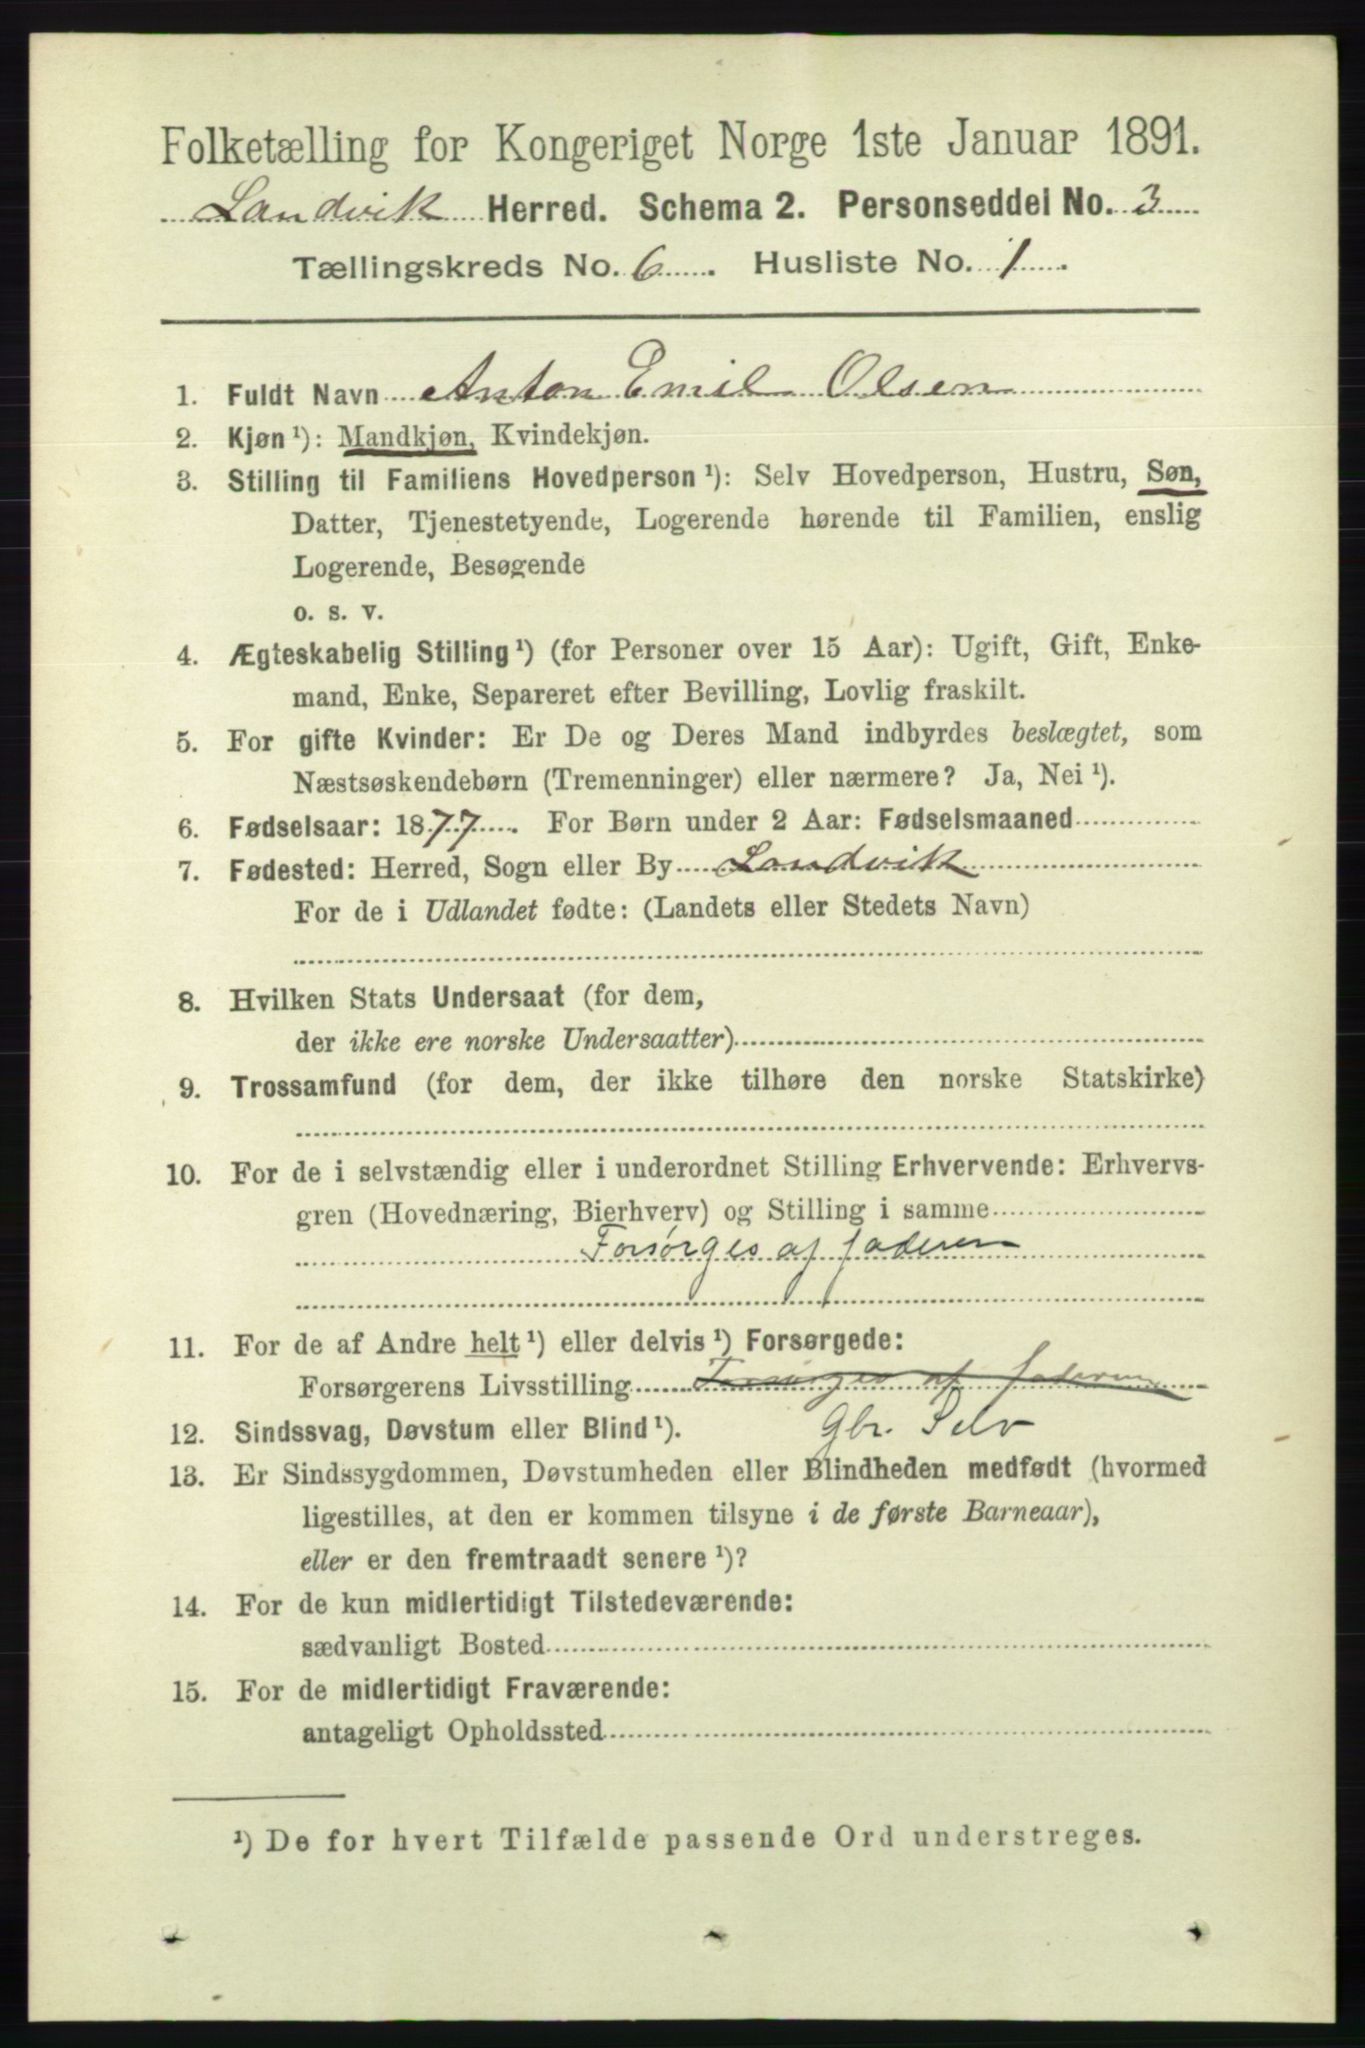 Folketælling for Kongeriget Norge 1ste Januar 1891.
Landvik Herred. Schema 2. Personseddel No. 3
Tællingskreds No. 6. Husliste No. 1.
1. Fuldt Navn Anton Emil Olsen
2. Kjøn¹): Mandkjøn, Kvindekjøn.
3. Stilling til Familiens Hovedperson¹): Selv Hovedperson, Hustru, Søn,
Datter, Tjenestetyende, Logerende hørende til Familien, enslig
Logerende, Besøgende
o. s. v.
4. Ægteskabelig Stilling¹) (for Personer over 15 Aar): Ugift, Gift, Enke-
mand, Enke, Separeret efter Bevilling, Lovlig fraskilt.
5. For gifte Kvinder: Er De og Deres Mand indbyrdes beslægtet, som
Næstsøskendebørn (Tremenninger) eller nærmere? Ja, Nei¹).
6. Fødselsaar: 1877. For Børn under 2 Aar: Fødselsmaaned
7. Fødested: Herred, Sogn eller By Landvik
For de i Udlandet fødte: (Landets eller Stedets Navn)
8. Hvilken Stats Undersaat (for dem,
der ikke ere norske Undersaatter)
9. Trossamfund (for dem, der ikke tilhøre den norske Statskirke)
10. For de i selvstændig eller i underordnet Stilling Erhvervende: Erhvervs-
gren (Hovednæring, Bierhverv) og Stilling i samme
Forsørges af faderen
11. For de af Andre helt¹) eller delvis¹) Forsørgede:
Forsørgerens Livsstilling Forsørges af faderen
12. Sindssvag, Døvstum eller Blind¹). Gbr. Selv
13. Er Sindssygdommen, Døvstumheden eller Blindheden medfødt (hvormed
ligestilles, at den er kommen tilsyne i de første Barneaar),
eller er den fremtraadt senere¹)?
14. For de kun midlertidigt Tilstedeværende:
sædvanligt Bosted
15. For de midlertidigt Fraværende:
antageligt Opholdssted
¹) De for hvert Tilfælde passende Ord understreges.